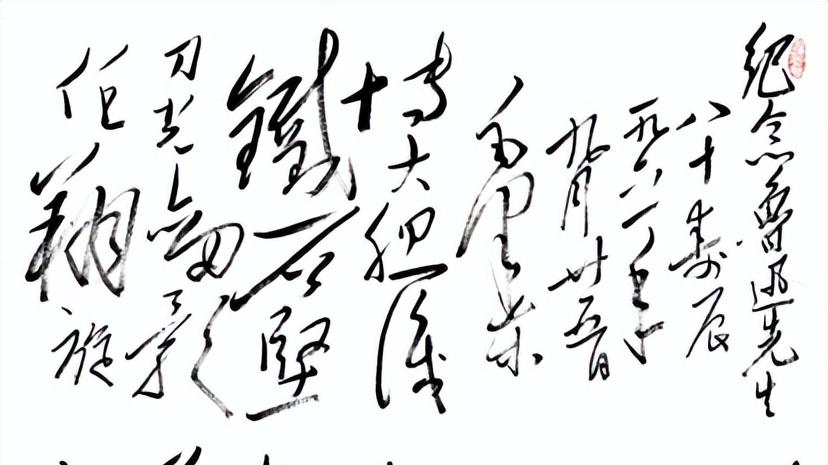 紀念魯迅先生
八十寿辰
一九六一年
九月廿五日
毛泽东
博大胆识
鐵石堅
刀光剑影
任翔旋